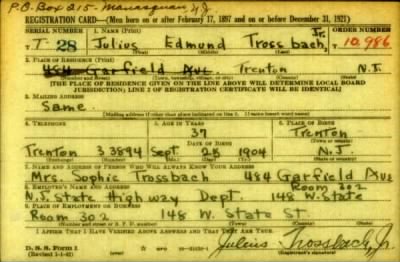 P.O. Box 215 - Manasquan, N.J.
REGISTRATION CARD—(Men born on or after February 17, 1897 and on or before December 31, 1921)
SERIAL NUMBER 1. NAME (Print) ORDER NUMBER
T- 28 Julius Edmund Trossbach, Jr. 10,986
(First) (Middle) (Last)
3. PLACE OF RESIDENCE (Print)
484 Garfield Ave. Trenton N.J.
(Number and street) (Town, township, village, or city) (County) (State)
[THE PLACE OF RESIDENCE GIVEN ON THE LINE ABOVE WILL DETERMINE LOCAL BOARD
JURISDICTION; LINE 2 OF REGISTRATION CERTIFICATE WILL BE IDENTICAL]
3. MAILING ADDRESS
Same
[Mailing address if other than place indicated on line 2. If same insert word same]
4. TELEPHONE 5. AGE IN YEARS 6. PLACE OF BIRTH
37 Trenton
DATE OF BIRTH (Town or county)
Trenton 3 3894 Sept 28 1904 N.J.
(Exchange) (Number) (Mo.) (Day) (Yr.) (State or country)
7. NAME AND ADDRESS OF PERSON WHO WILL ALWAYS KNOW YOUR ADDRESS
Mrs. Sophie Trossbach 484 Garfield Ave
8. EMPLOYER'S NAME AND ADDRESS Room 302
N.J. State Highway Dept. 148 W. State
9. PLACE OF EMPLOYMENT OR BUSINESS
Room 302 148 W. State St.
(Number and street or R. F. D. number) (Town) (County) (State)
I AFFIRM THAT I HAVE VERIFIED ABOVE ANSWERS AND THAT THEY ARE TRUE.
D. S. S. Form 1
(Revised 1-1-42) (over) Julius Trossbach, Jr.